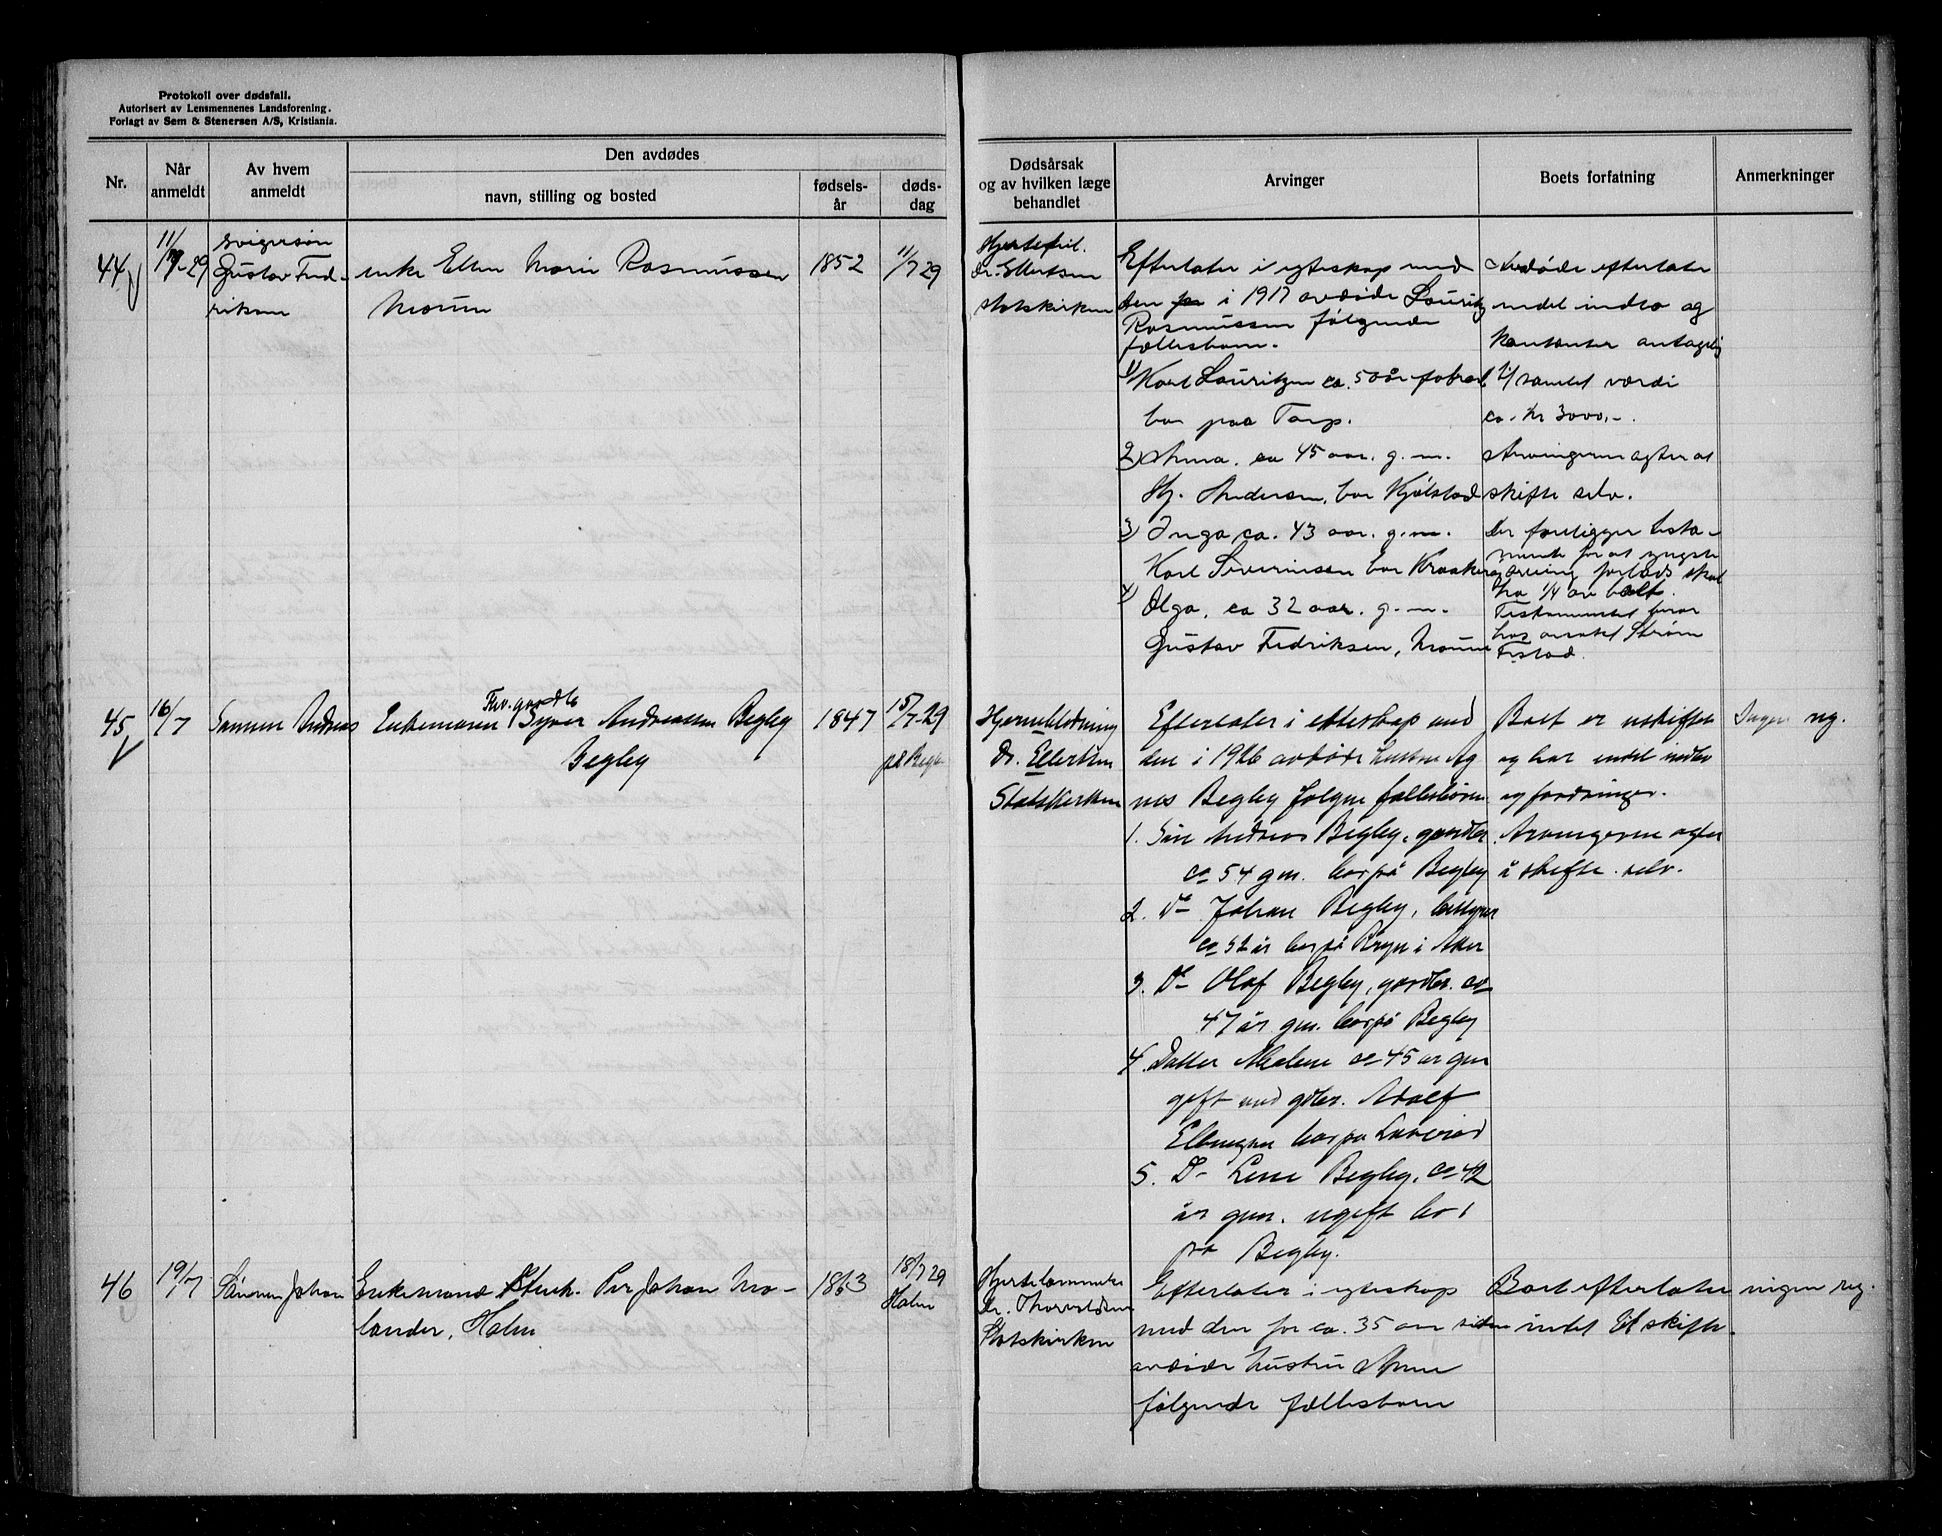 Protokoll over dødsfall.
Autorisert av Lensmennenes Landsforening.
Forlagt av Sem & Stenersen A/S, Kristiania.
Nr.
Når anmeldt
Av hvem anmeldt
Den avdødes
navn, stilling og bosted
fødsels-år
døds-dag
Dødsårsak og av hvilken læge behandlet
Arvinger
Boets forfatning
Anmerkninger
44
11/7-29
svigersøn
Gustav Fred-
riksen
enke Ellen Marie Rasmussen
Moum
1852
11/7 29
Hjertefeil.
dr. Ellertsen
statskirken
Efterlater i egteskap med
den i 1917 avdøde Lauritz
Rasmussen følgende
fællesbarn.
1) Karl Lauritzen ca. 50 år fabrarb.
bor paa Torp.
2) Anna, ca 45 aar. g. m.
Hj. Andersen, bor Kjølstad
3) Inga ca. 43 aar. g. m.
Karl Severinsen bor Kraakerø
4) Olga, ca 32 aar. g. m.
Gustav Fedriksen, Moum
Avdøde efterlater
endel indbo og
kontanter antagelig
til samlet værdi
ca. kr 3000,-.
Arvingerne agter at
skifte selv.
Der foreligger testa-
mente for at yngste
arving forlods skal
ha 1/4 av boet.
Testamentet beror
hos anvokat Strøm
F.stad.
45
16/7
Sønnen Andreas
Fhv. gårdbr
Enkemann Syver Andreassen Begby
Begby
1847
15/7-29
på Begby
Hjerneblødning
Dr. Ellertsen
Statskirken
Efterlater i ekteskap med
den i 1926 avdøde hustru Ag
nes Begby følgene fællesbørn
1. Søn Andreas Begby, gårdbr
ca 54 gm. bor på Begby
2. Do Johan Begby,
ca 52 år bor på Bryn i Aker
3. Do Olaf Begby, gårdbr. ca
47 år gm. bor på Begby
4. Datter ca 45 år gm
gift med gdbr. Adolf
bor på
5. Do Lene Begby, ca 42
år gm. ugift bor
på Begby.
Boet er uskiftet
og har endel indbo
og fordringer.
Arvingerne agter
å skifte selv.
Ingen rg.
46
19/7
Sønnen Johan
Enkemand Per Johan Mo-
lander, Holm
1853
18/7 29
Holm
Hjertelammelse
Dr. Thorvaldsen
Statskirken
Efterlater i egteskap
med den for ca. 35 aar siden
avdøde hustru Anne
følgende fællesbarn
Boet efterlater
intet til skifte.
ingen reg.